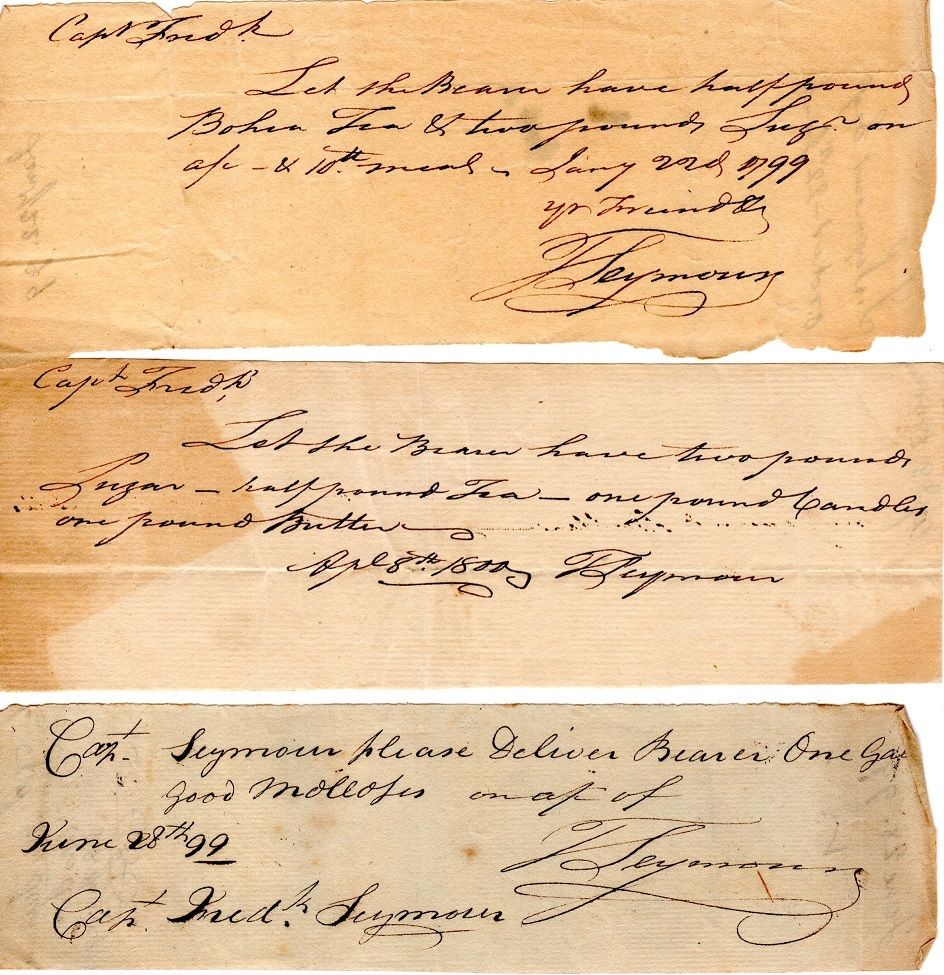 Capt Fredk
Let the Bearer have half pound
Bohea Tea & two pounds Sugr. on
a/c - & 10th meal - Jany 22d 1799
yr Freind &c
T Seymour
Capt Fredk,
Let the Bearer have two pounds
Sugar - half pound Tea - one pound Candles
one pound Butter
Apl 8th 1800 T Seymour
Capt. Seymour please Deliver Bearer One Gal
good Molloses on a/c of
June 28th 99
T Seymour
Capt. Fredk. Seymour